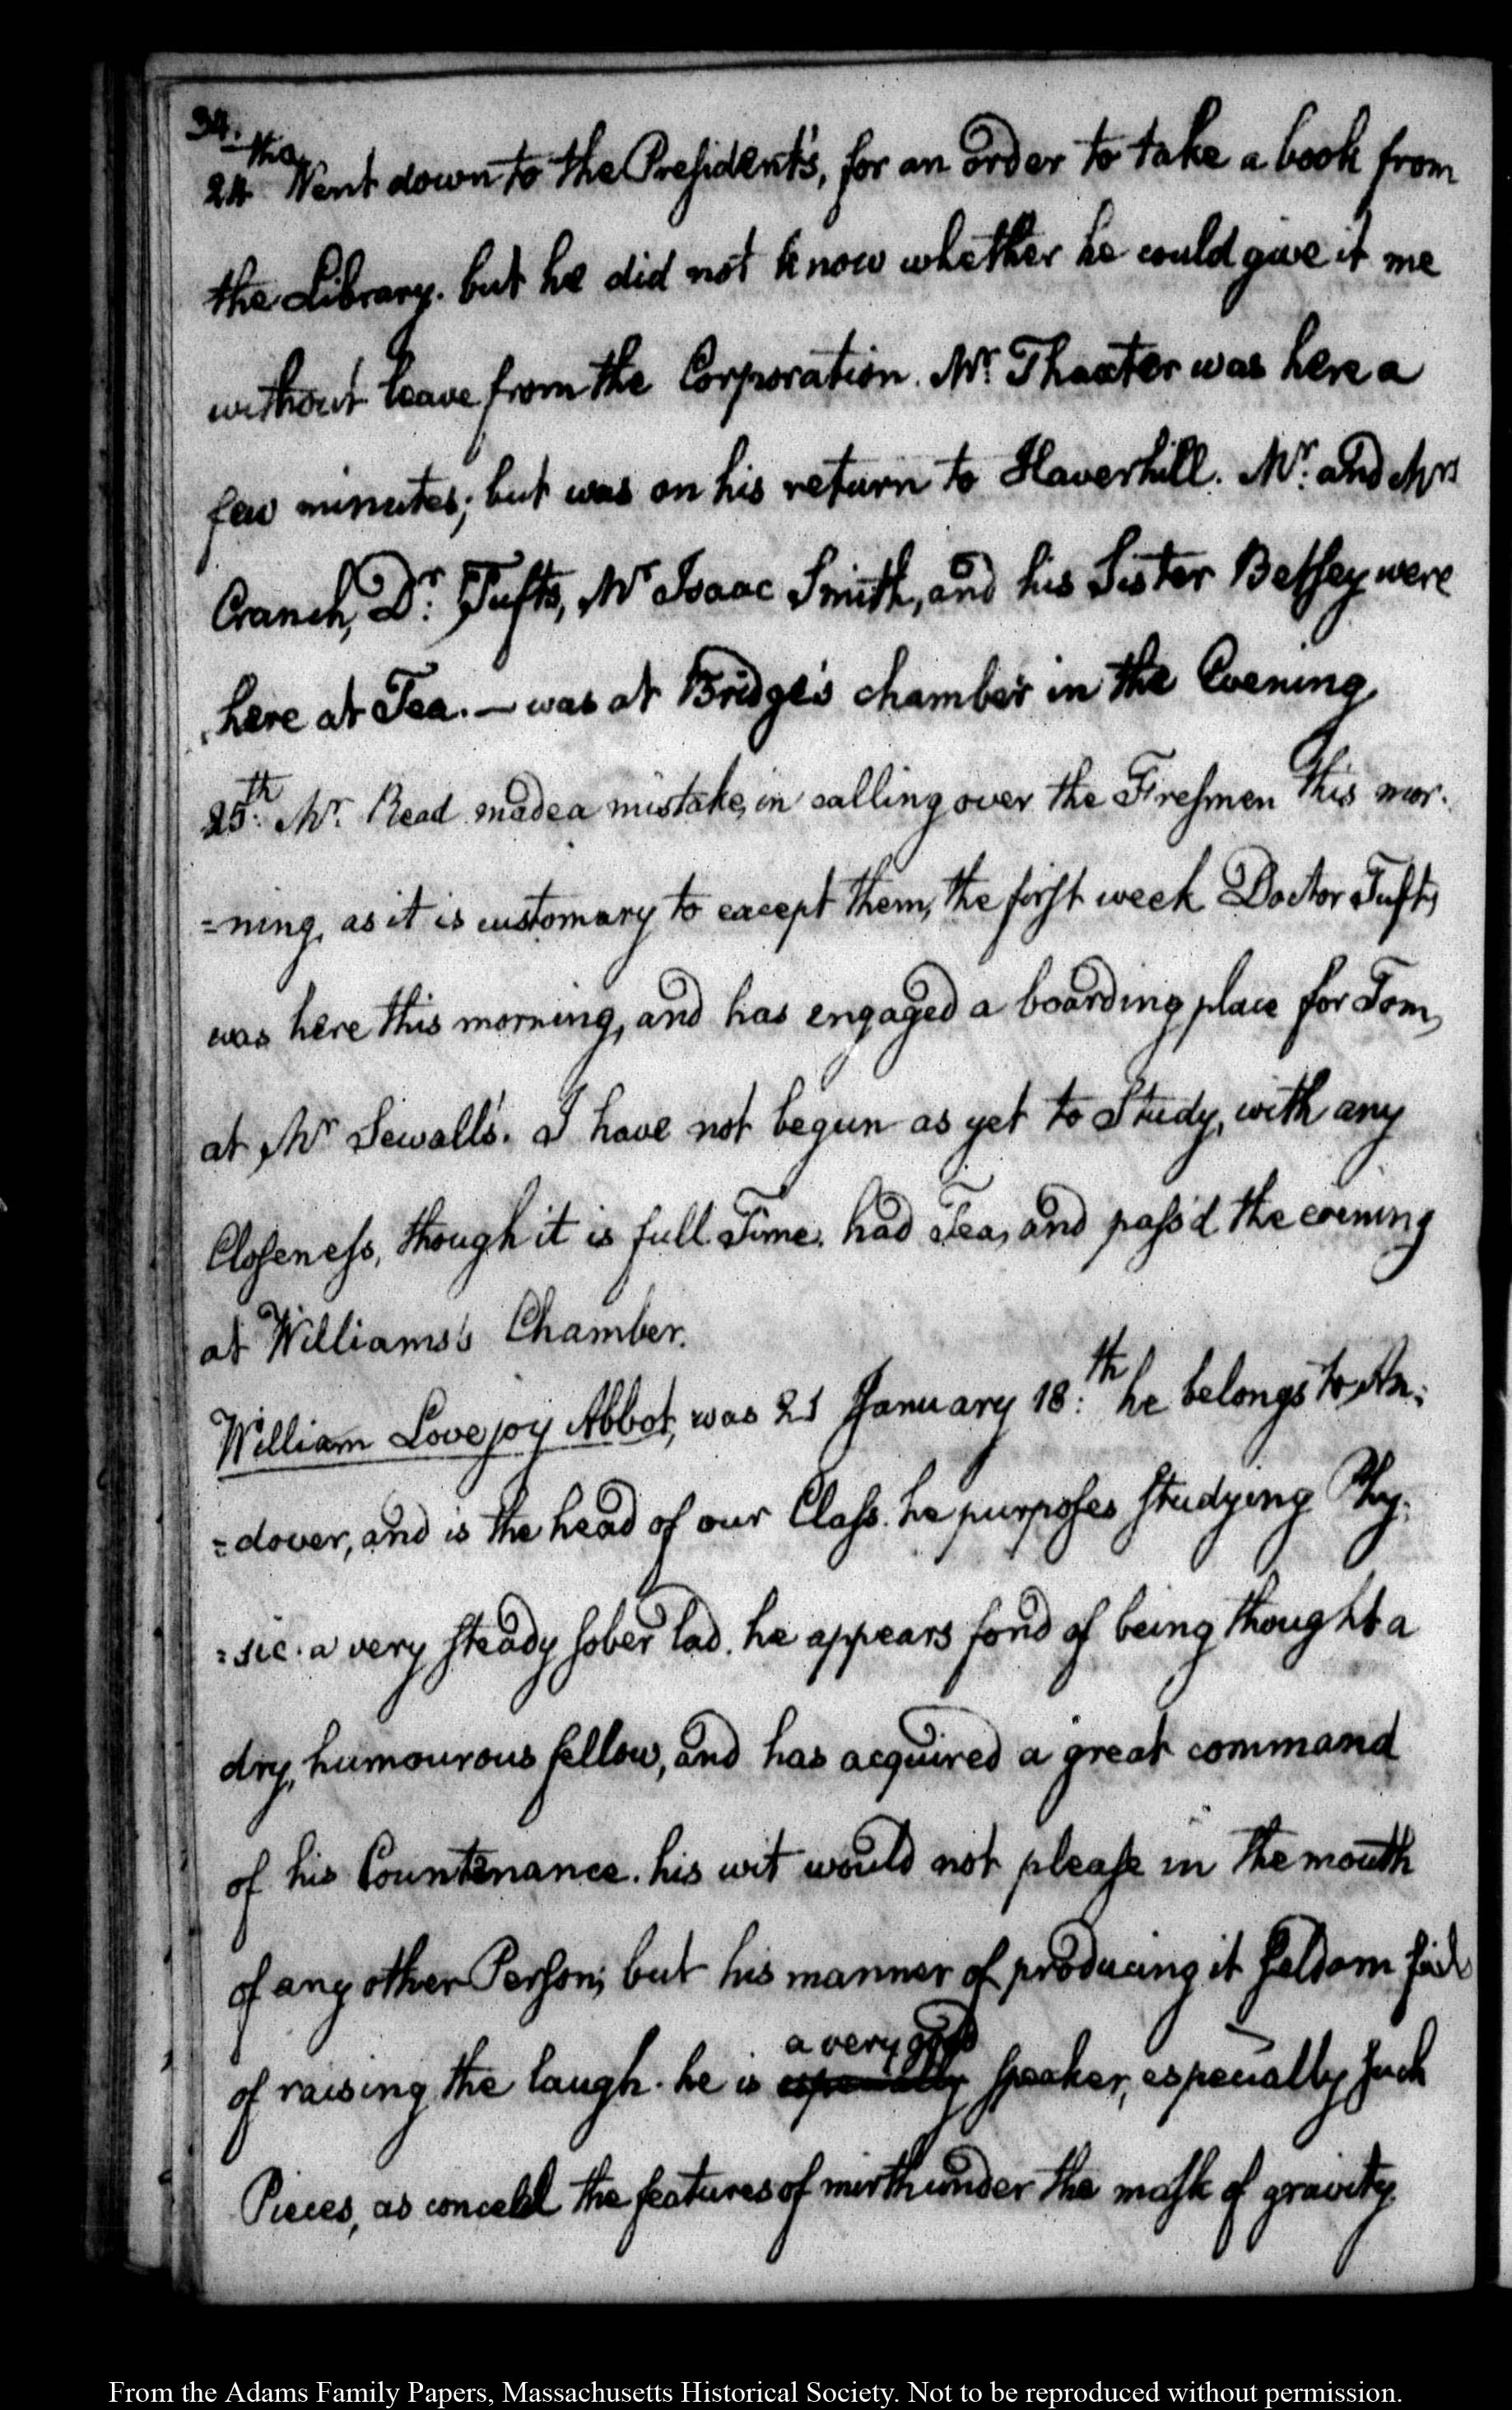 34.
24th. Went down to the President's, for an order to take a book from
the Library. but he did not know whether he could give it me
without leave from the Corporation. Mr. Thaxter was here a
few minutes; but was on his return to Haverhill. Mr. and Mrs
Cranch, Dr. Tufts, Mr Isaac Smith, and his Sister Betsey were
here at Tea. — was at Bridge's chamber in the Evening.
25th. Mr. Read made a mistake, in calling over the Freshmen this mor-
=ning, as it is customary to except them, the first week Doctor Tufts,
was here this morning, and has engaged a boarding place for Tom,
at Mr Sewall's. I have not begun as yet to Study, with any
Closeness, though it is full Time. had Tea, and pass'd the evening
at Williams's Chamber.
William Lovejoy Abbot, was 21 January 18:th he belongs to An=
=dover, and is the head of our Class. he purposes studying Phy=
=sic. a very steady sober lad. he appears fond of being thought a
dry, humourous fellow, and has acquired a great command
of his Countenance. his wit would not please in the mouth
of any other Person; but his manner of producing it seldom fails
a very good
of raising the laugh. he is especially speaker, especially such
Pieces, as conceal the features of mirth under the mask of gravity.
From the Adams Family Papers, Massachusetts Historical Society. Not to be reproduced without permission.